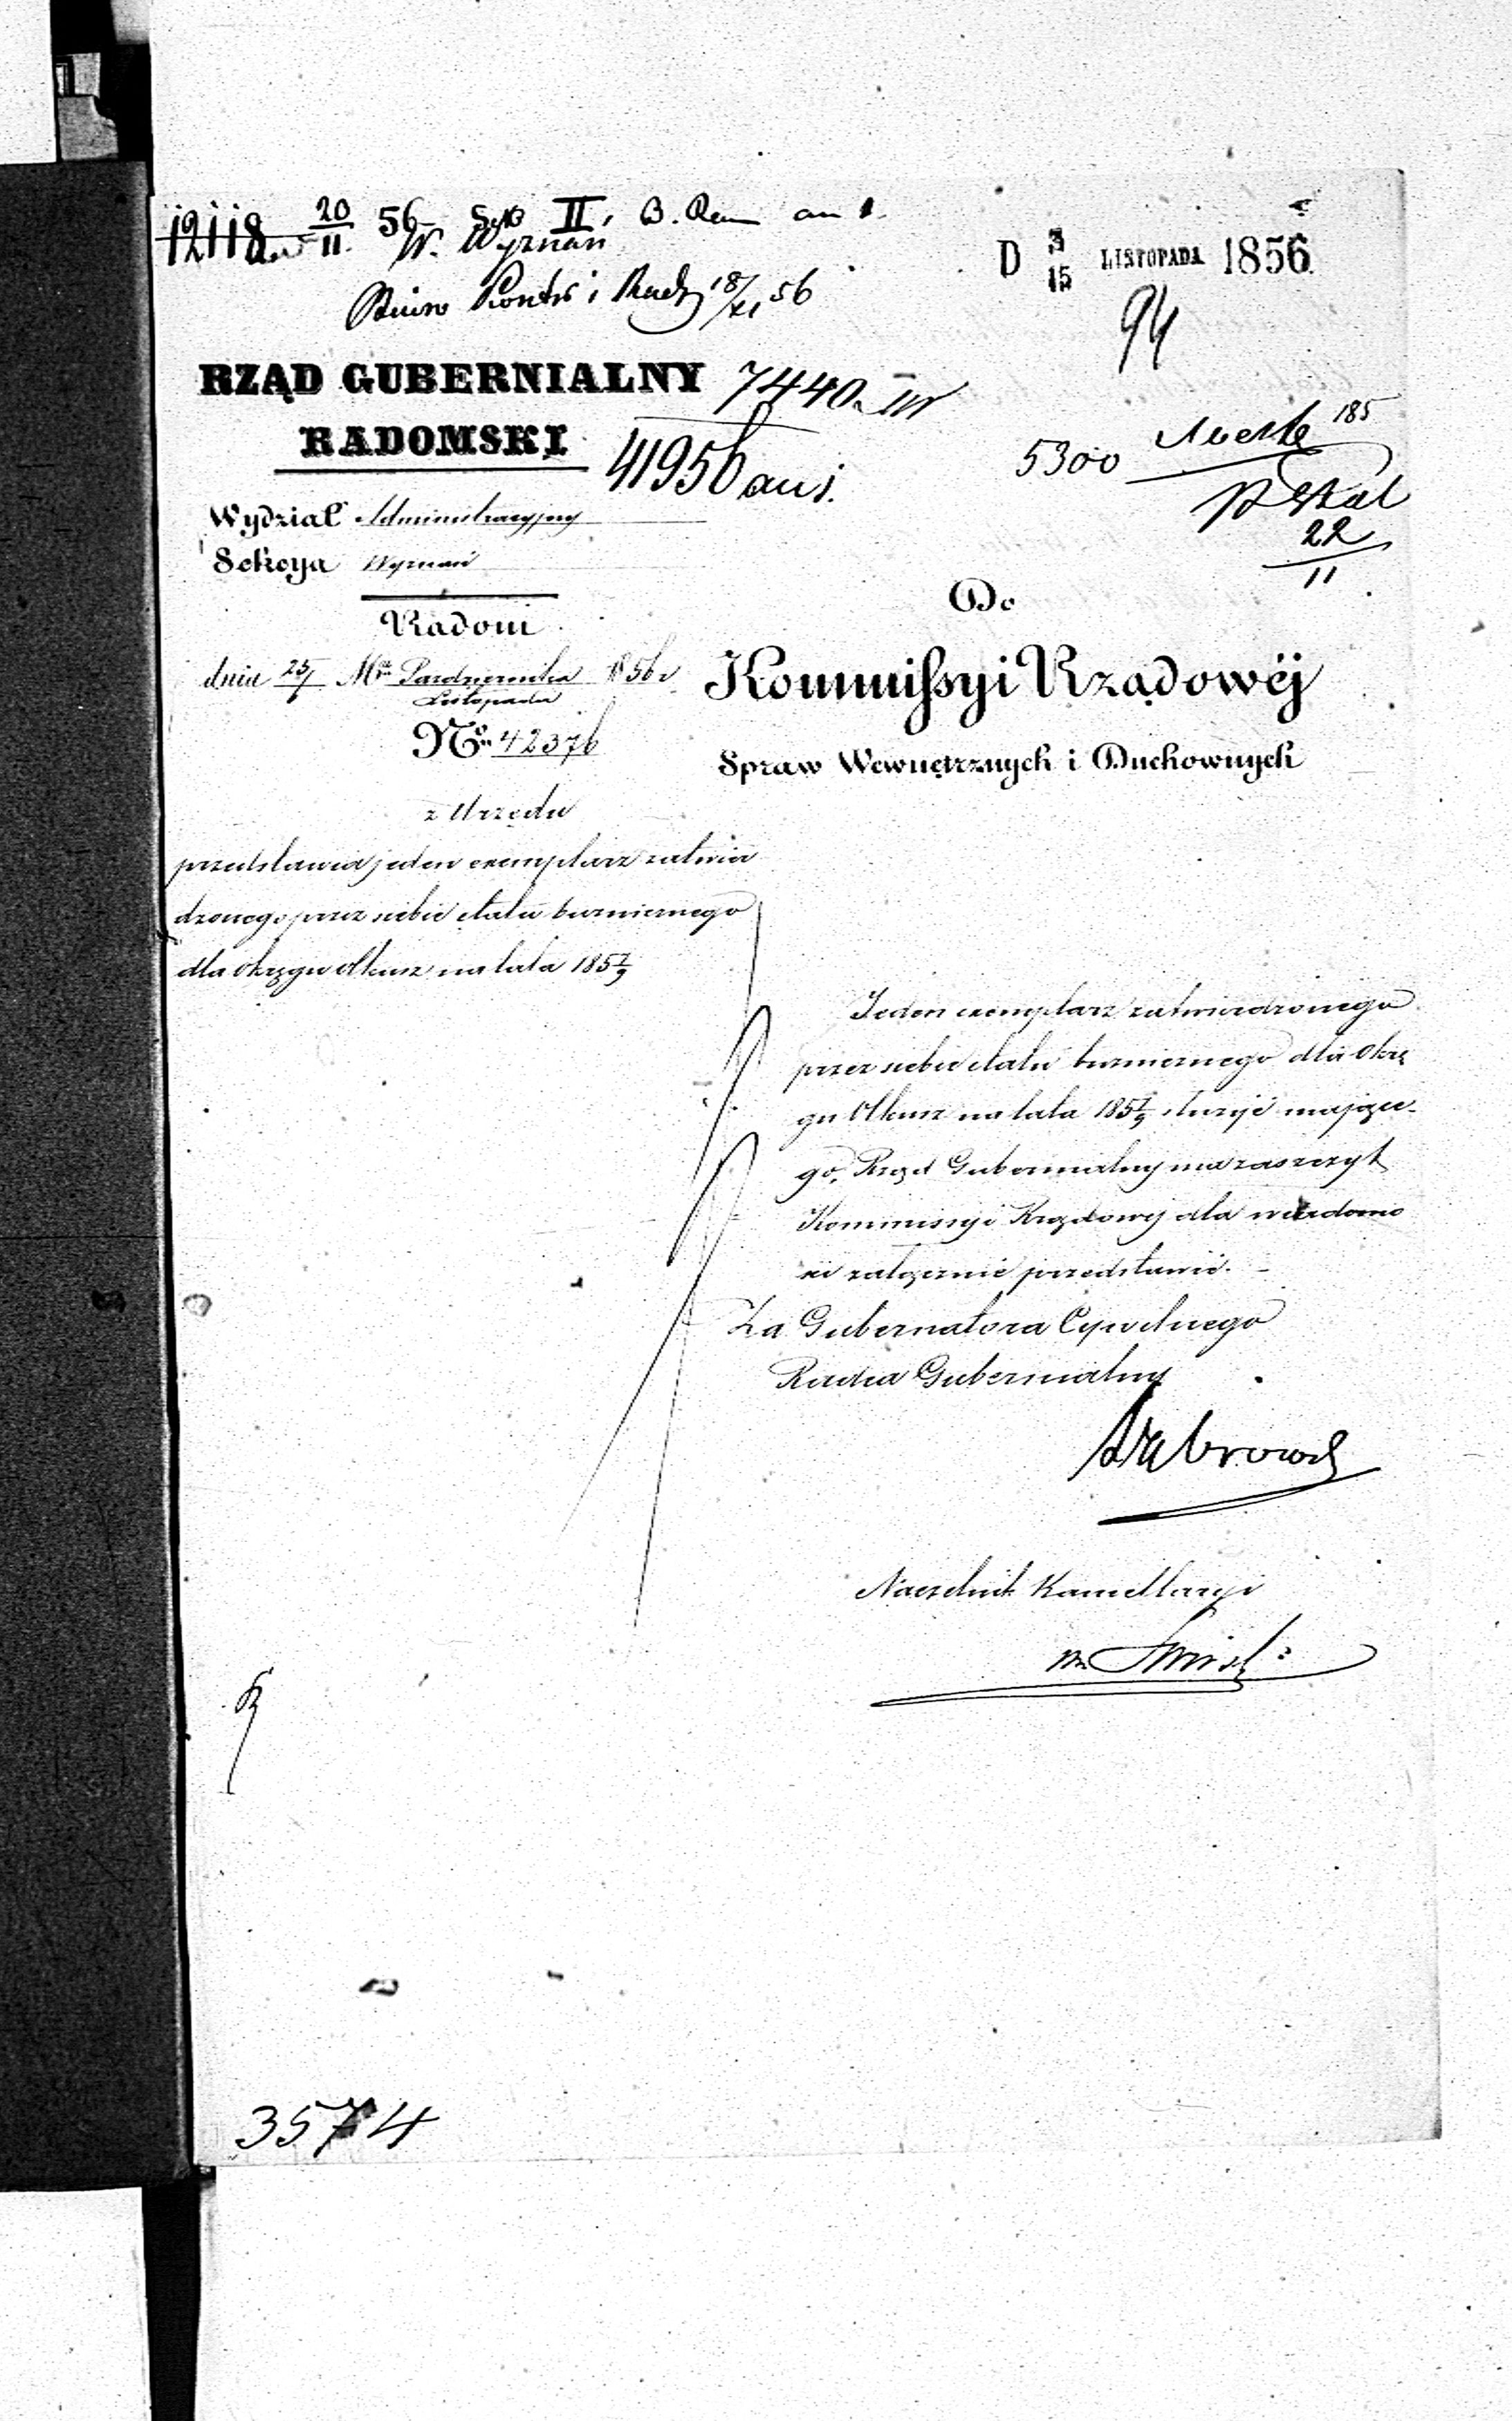 12118 20/11 56 II. B.
W. Wyznań
Biuro Kontr i Rach 18/XI 56
D 3/15 LISTOPADA 1856
94
RZĄD GUBERNIALNY
RADOMSKI
7440
41956
5300
185
22/11
Wydział Administracyjny
Sekcya Wyznań
Radom
dnia 25/7 Mca Pazdziernika/Listopada 1856 r
No 42376
Do
Kommissyi Rządowéj
Spraw Wewnętrznych i Duchownych
z Urzędu
przedstawia jeden exemplarz zatwier
dzonego przez siebie etatu bużnicznego
dla Okręgu Olkusz na lata 185 7/9
Jeden exemplarz zatwierdzonego
przez siebie etatu bużniczego dla Okrę
gu Olkusz na lata 185 7/9 służyć mające-
go, Rząd Gubernialny ma zaszczyt
Kommissyi Rządowej dla wiadomo
ści załącznie przedstawić. –
Za Gubernatora Cywilnego
Radca Gubernialny
Naczelnik Kancellaryi
3574